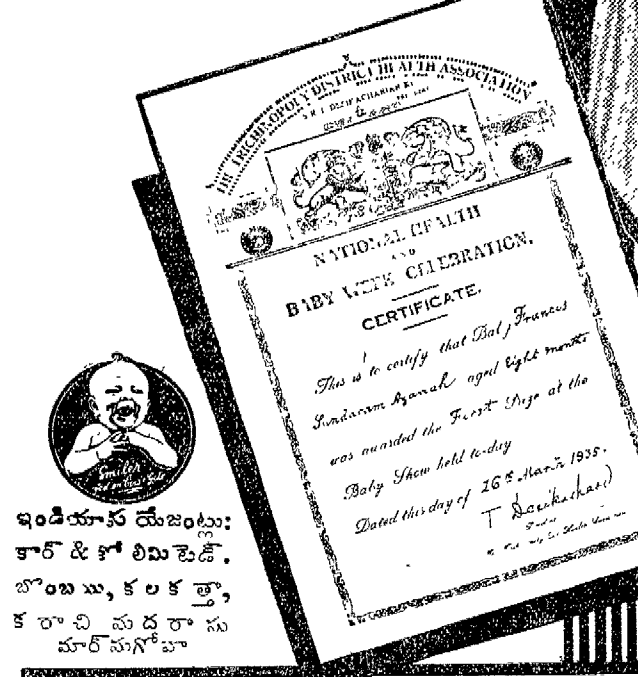 THE TRICHINOPOLY DISTRICT HEALTH ASSOCIATION
NATIONAL HEALTH
AND
BABY WEEK CELEBRATION.
CERTIFICATE.
This is to certify that Baby Frances
Sundaram aged Eight months
was awarded the First Prize at the
Baby Show held to-day
Dated this day of 16th March 1935.
ఇండియాకు యేజంట్లు:
కార్ & కో లిమిటెడ్.
బొంబయి, కలకత్తా,
కరాచి మదరాసు
మార్ముగోవా